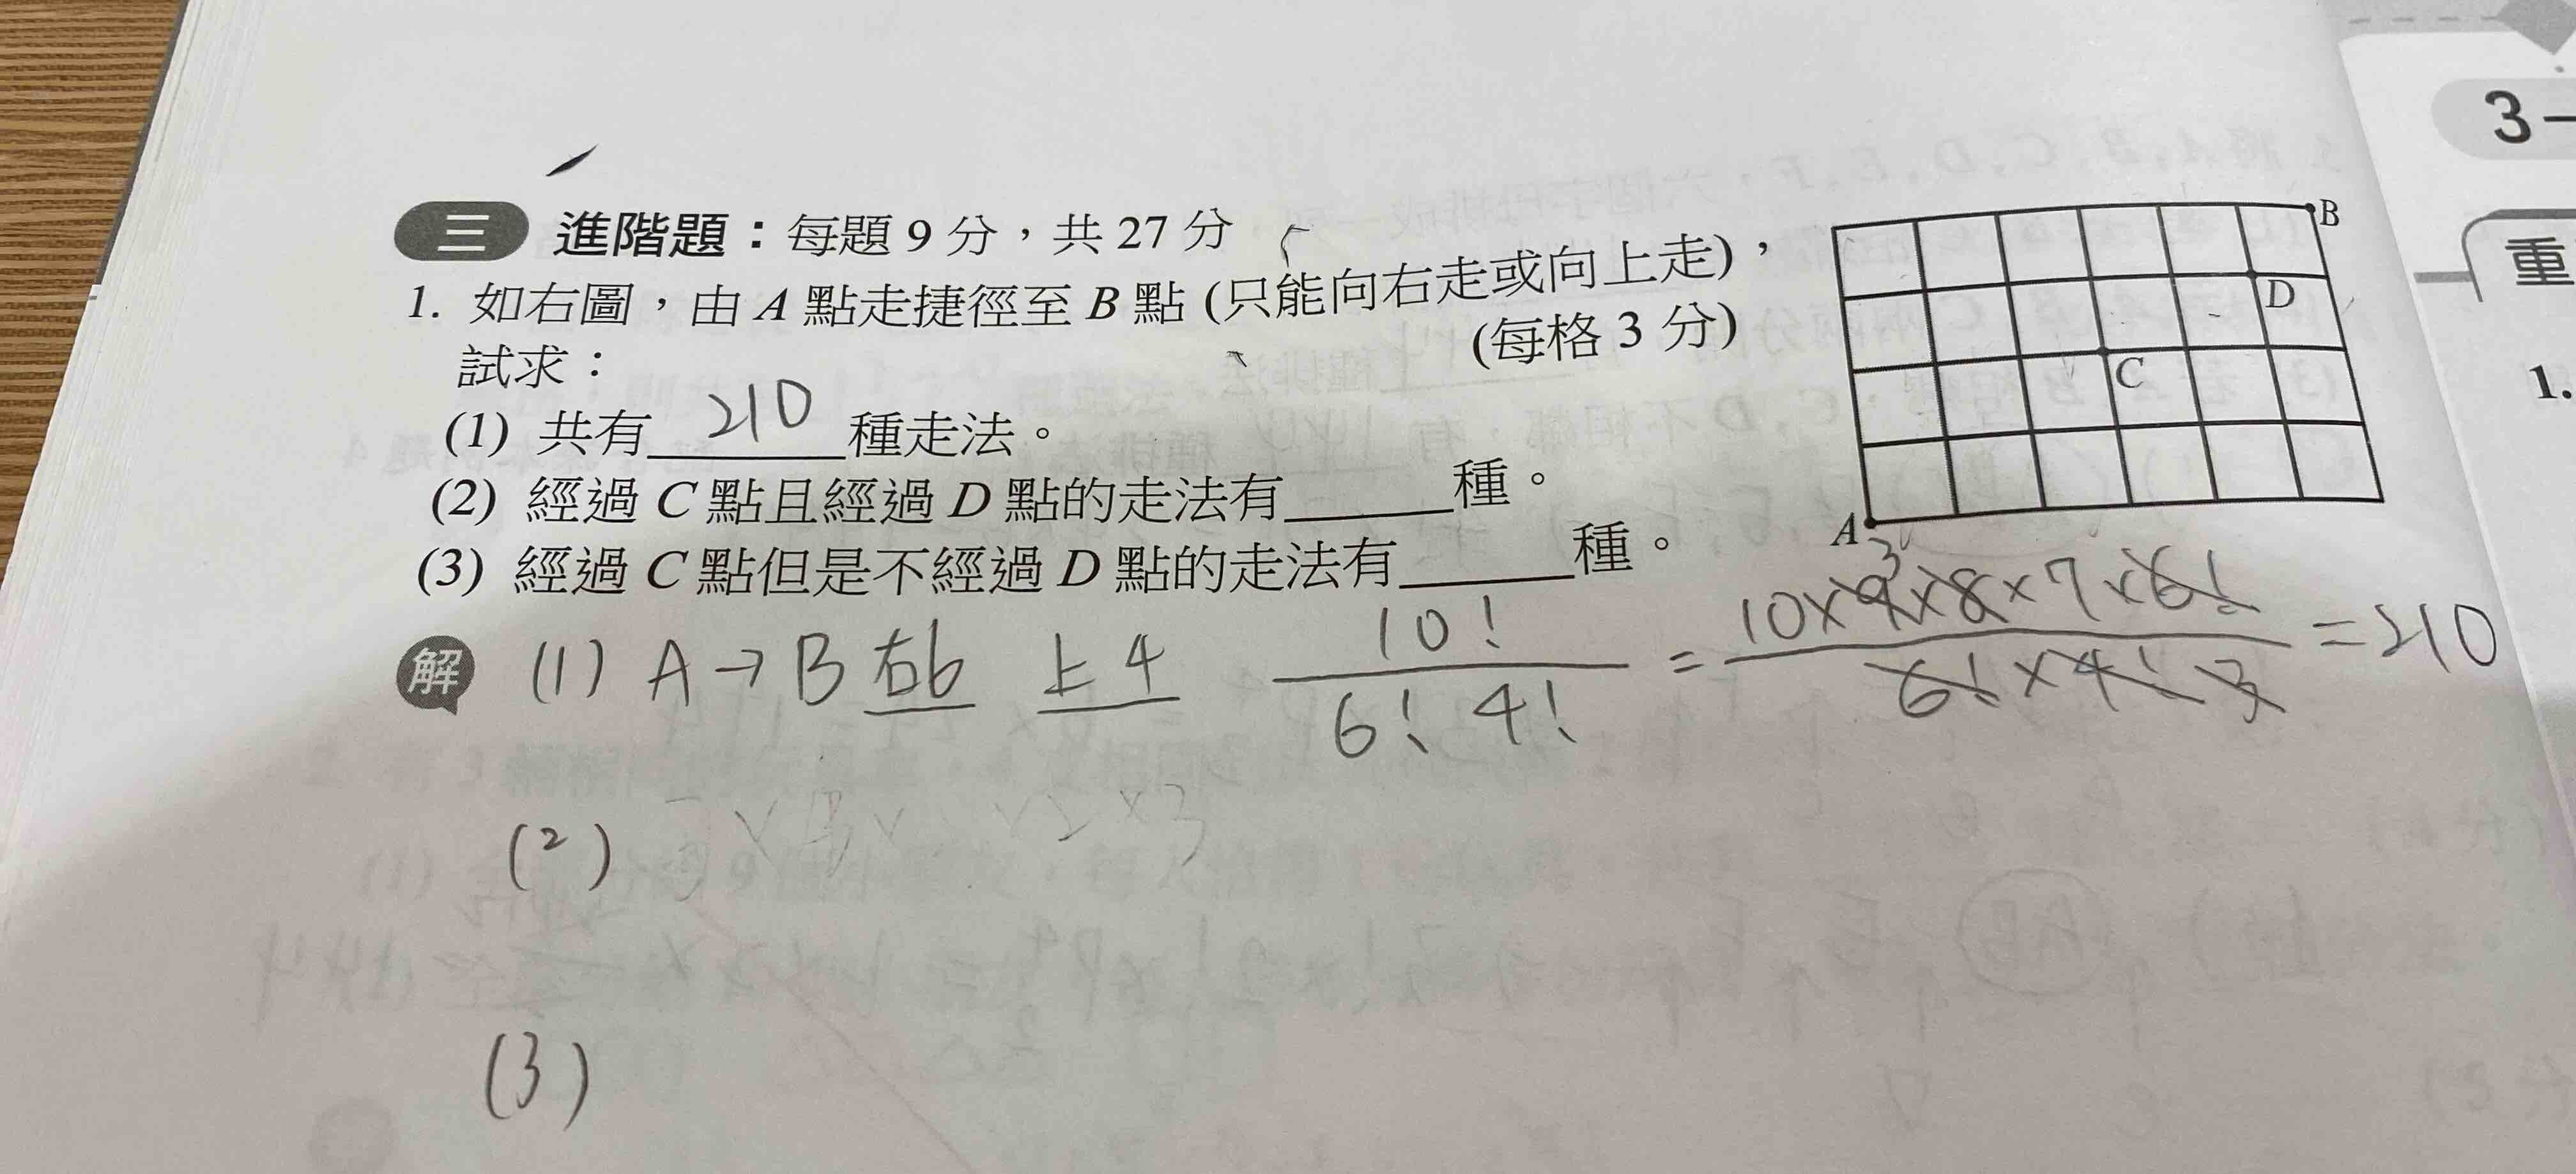 3-
重
1.
三 進階題：每題 9 分，共 27 分
1. 如右圖，由 A 點走捷徑至 B 點 (只能向右走或向上走)，
試求：
(每格 3 分)
(1) 共有 210 種走法。
(2) 經過 C 點且經過 D 點的走法有______種。
(3) 經過 C 點但是不經過 D 點的走法有______種。
B
D
C
A
解 (1) A→B 右6 上4 10!/(6! 4!) = (10×9×8×7×6!)/(6!×4!) = 210
3
3
(2)
(3)